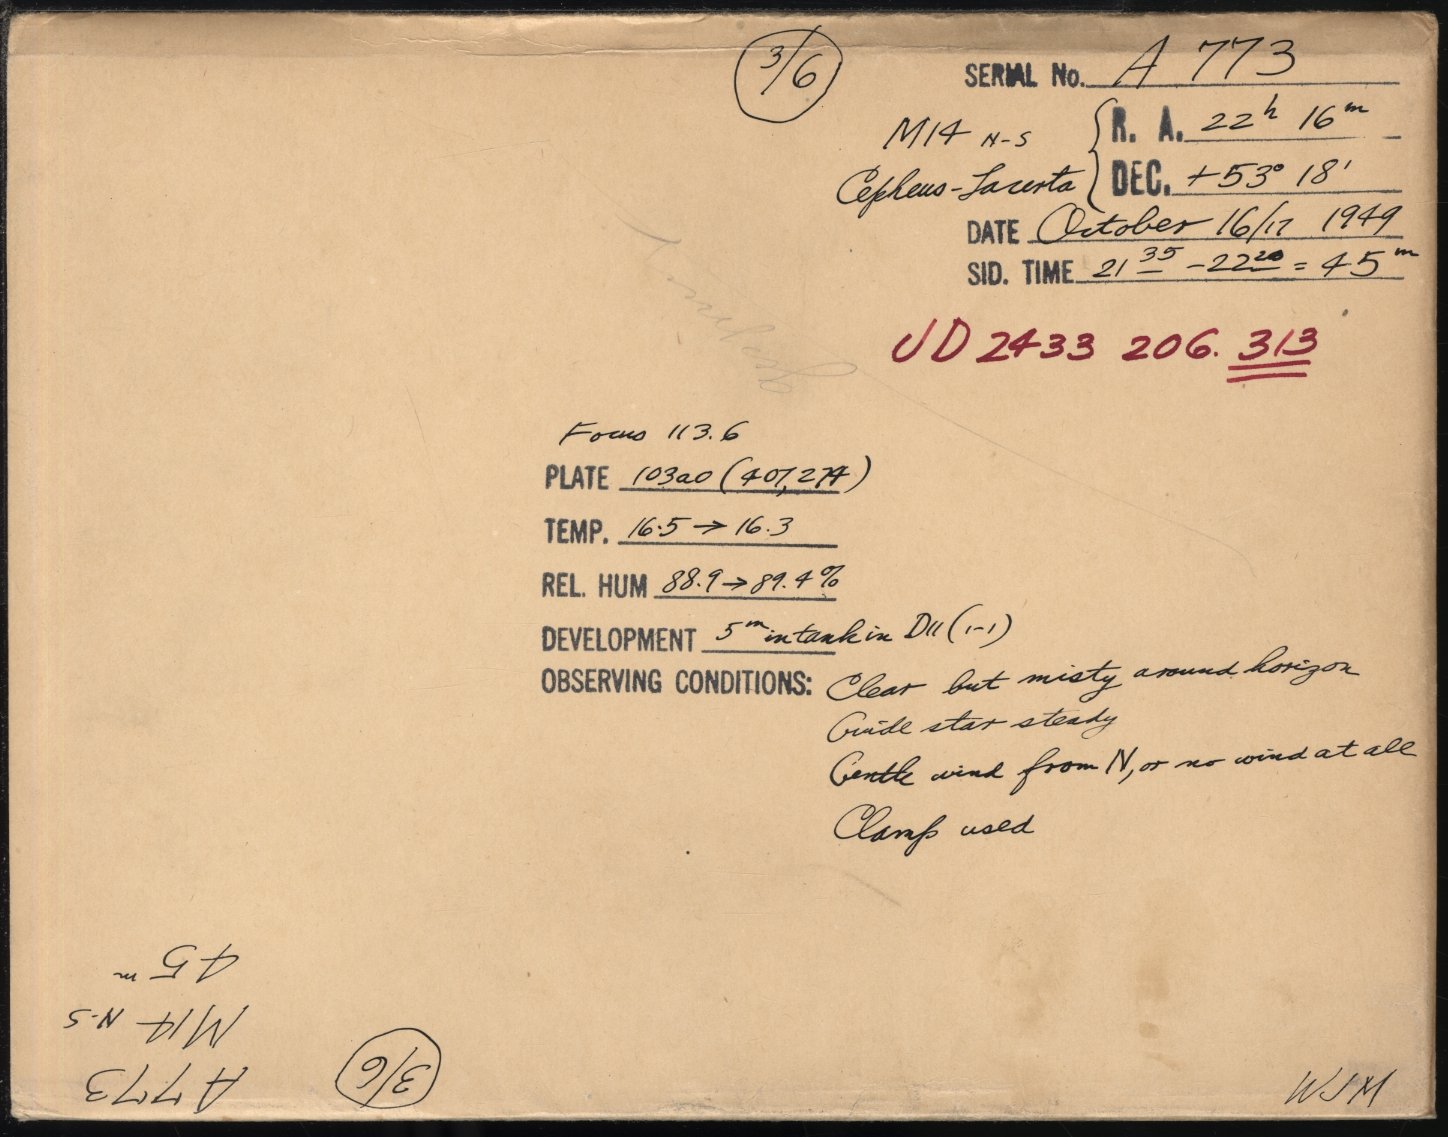 3/6
SERIAL No. A 773
M14 N-S { R. A. 22h 16m
Cepheus-Lacerta DEC. +53° 18'
DATE October 16/17 1949
SID. TIME 21 35 - 22 20 = 45m
JD 2433 206. 313
Focus 113.6
PLATE 103aO (407,274)
TEMP. 16.5 → 16.3
REL. HUM 88.9 → 89.4%
DEVELOPMENT 5m in tank in D11 (1-1)
OBSERVING CONDITIONS: Clear but misty around horizon
Guide star steady
Gentle wind from N, or no wind at all
Clamp used
3/6
A773
M14 N-S
45m
WJM